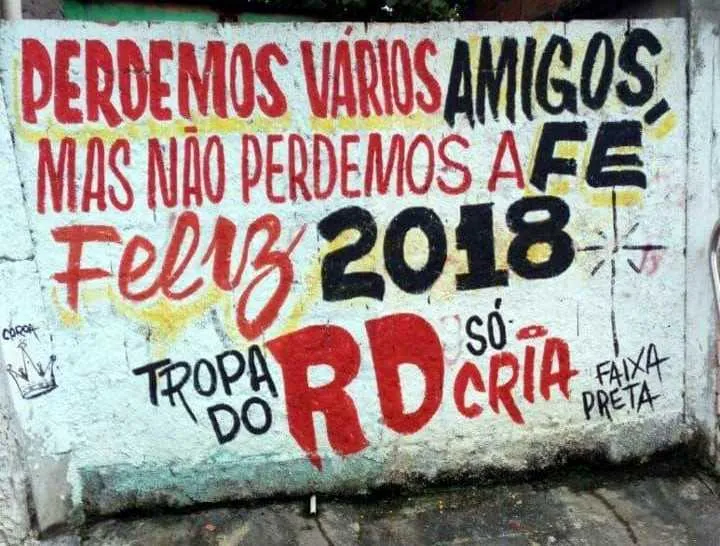 PERDEMOS VÁRIOS AMIGOS,
MAS NÃO PERDEMOS A FE
FELIZ 2018
COROA
TROPA DO RD SÓ CRIA
FAIXA PRETA